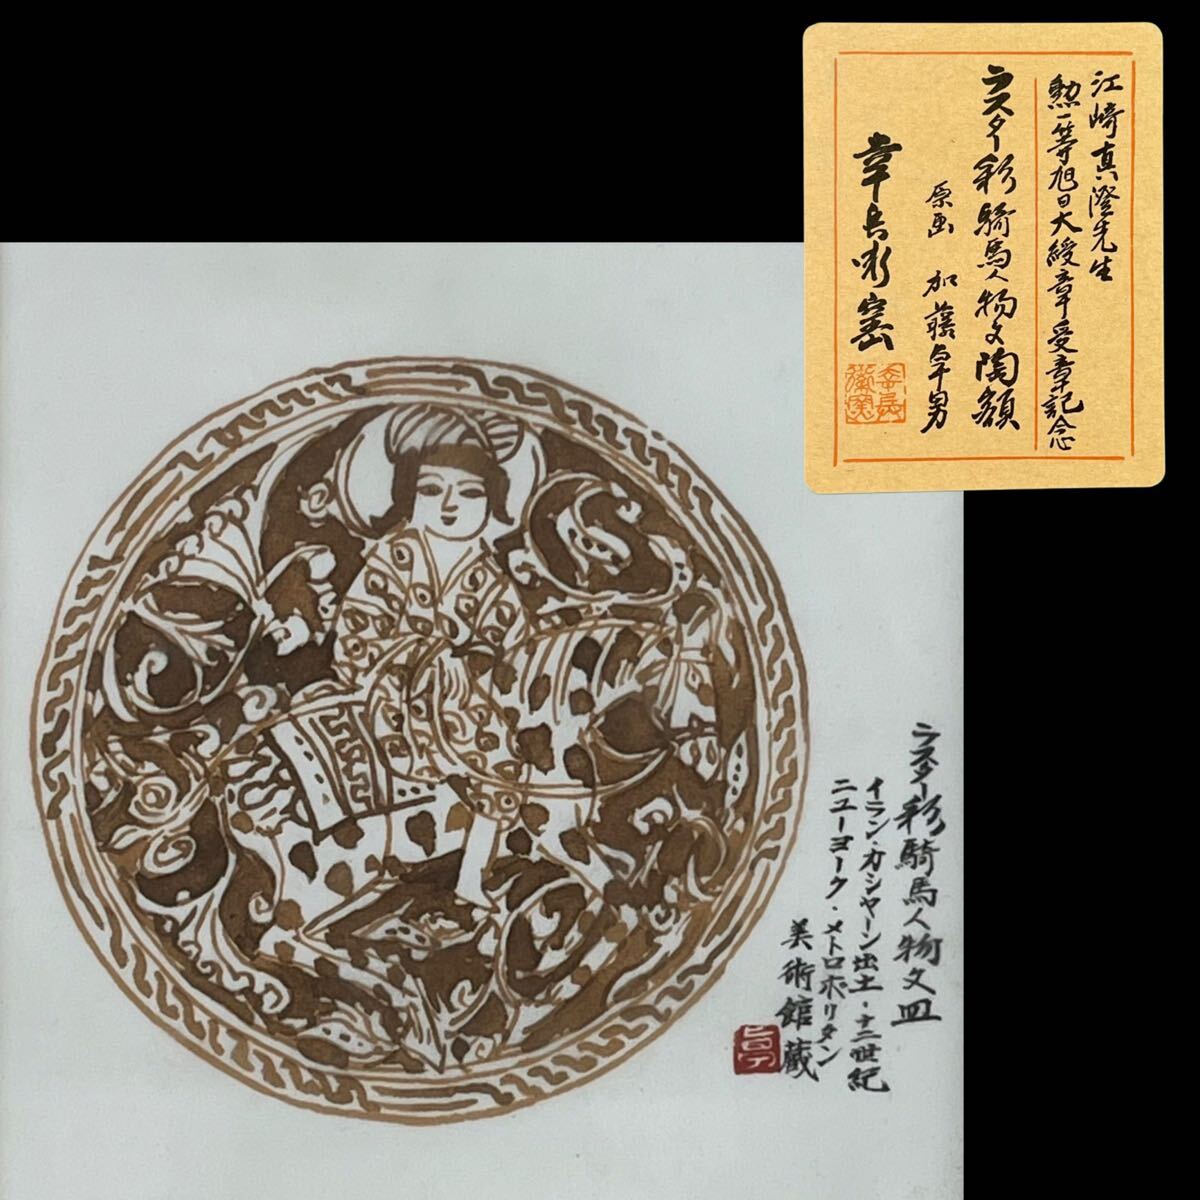 江﨑真澄先生
勲一等旭日大綬章受章記念
ラスター彩騎馬人物文陶額
原画 加藤卓男
幸兵衛窯
幸兵衛窯
ラスター彩騎馬人物文皿
イラン・カシャーン出土・十二世紀
ニューヨーク・メトロポリタン
美術館蔵